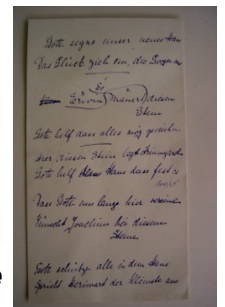 Gott segne unser neues Haus
Das Glück zieh ein, die Sorgen aus
Es
Erwin Mäurer diesem
Stein
Gott helf dass alles mög gedeihn
der diesen Stein legt
Gott helf dass Haus dass fest es
Dass Gott uns lange hier
wünscht Joachim bei diesem
Steine
Gott schütze alle in dem Haus
spricht der kleinste aus
e